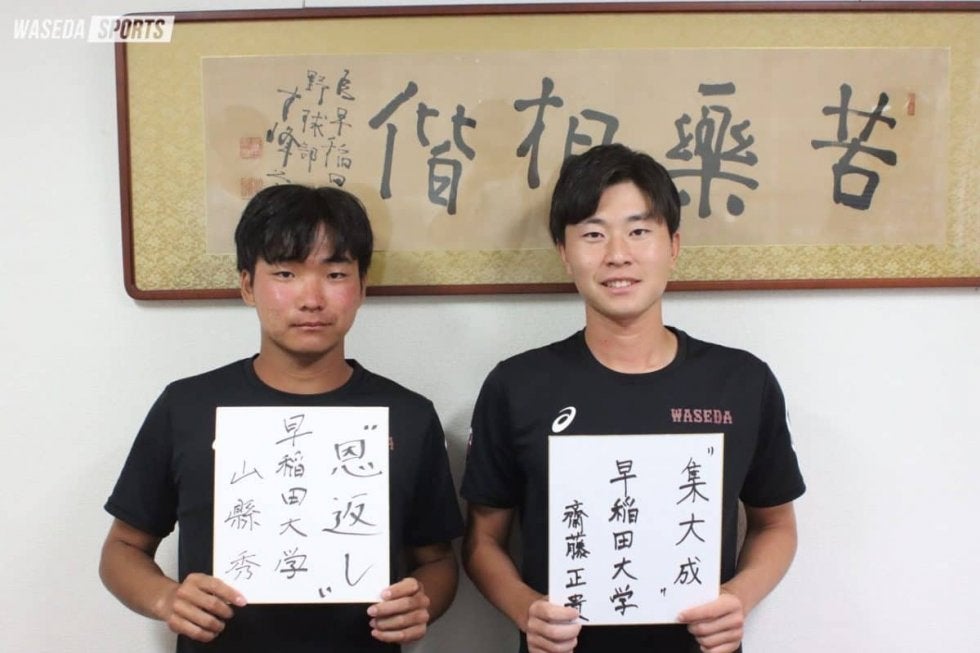 WASEDA SPORTS
苦樂相偕
為早稲田
野球部
WASEDA
〝恩返し〟
早稲田大学
山縣秀
〝集大成〟
早稲田大学
齋藤正貴